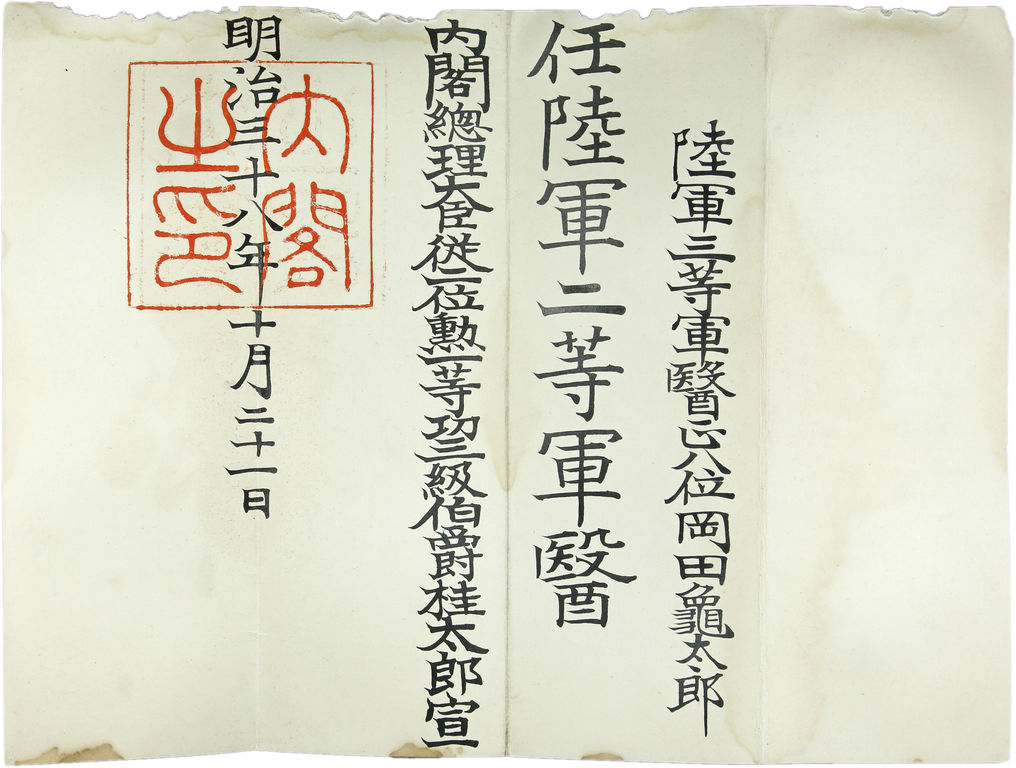 陸軍三等軍醫正八位岡田龜太郎
任陸軍二等軍醫
內閣總理大臣從二位勳一等功三級伯爵桂太郎宣
明治三十八年十月二十一日
內閣之印